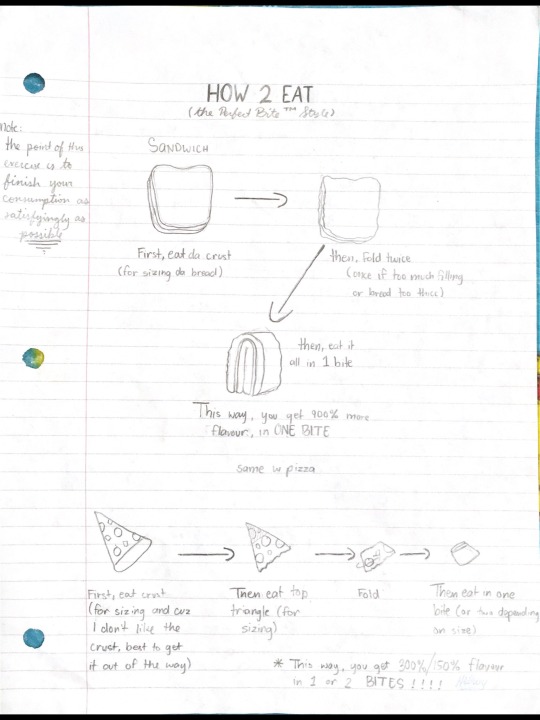 HOW 2 EAT
(the Perfect Bite™ Style)
Note:
the point of this
exercise is to
finish your
consumption as
satisfyingly as
possible
SANDWICH
First, eat da crust
(for sizing da bread)
then, Fold twice
(once if too much filling
or bread too thicc)
then, eat it
all in 1 bite
This way, you get 900% more
flavour, in ONE BITE
same w pizza
First, eat crust
(for sizing and cuz
I don't like the
crust, best to get
it out of the way)
Then eat top
triangle (for
sizing)
Fold
Then eat in one
bite (or two depending
on size)
* This way, you get 300%/150% flavour
in 1 or 2 BITES !!!!